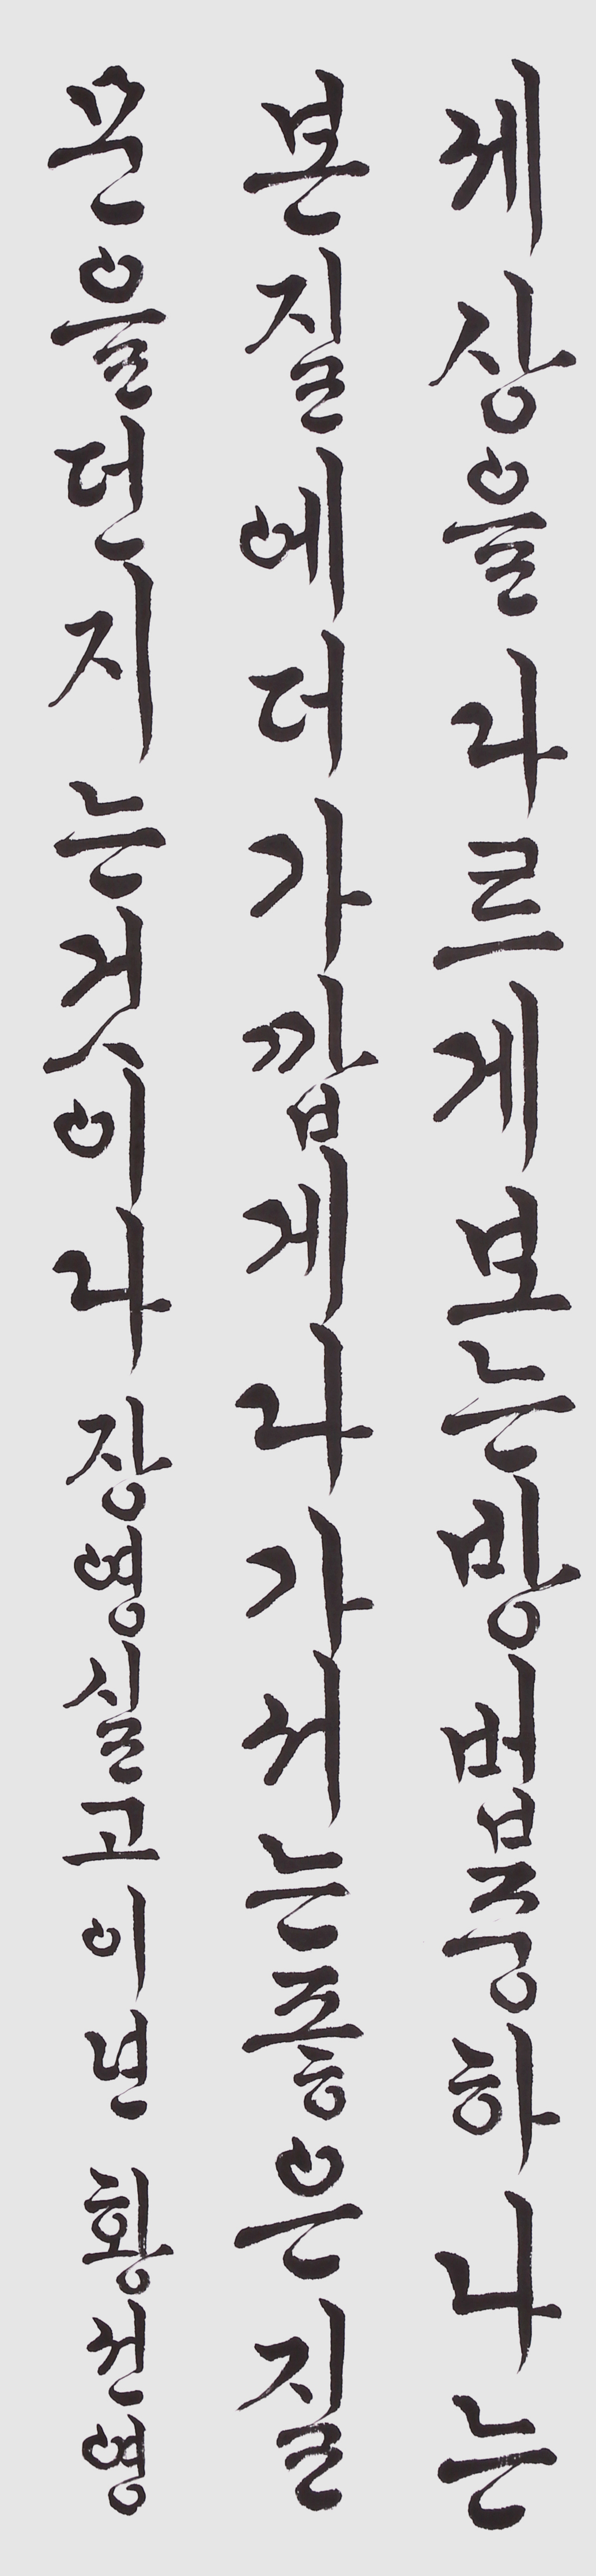 세상을다르게보는방법중하나는
본질에더가깝게다가서는좋은질
문을던지는것이다 장영실고이년 황선영